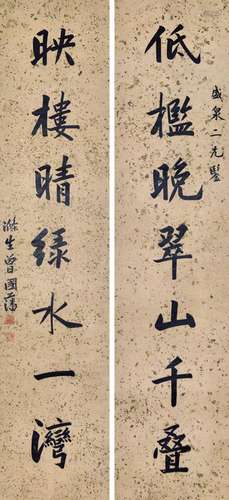 盛泉二兄鑒
低檻晚翠山千叠
映樓晴緑水一灣
滌生曾國藩